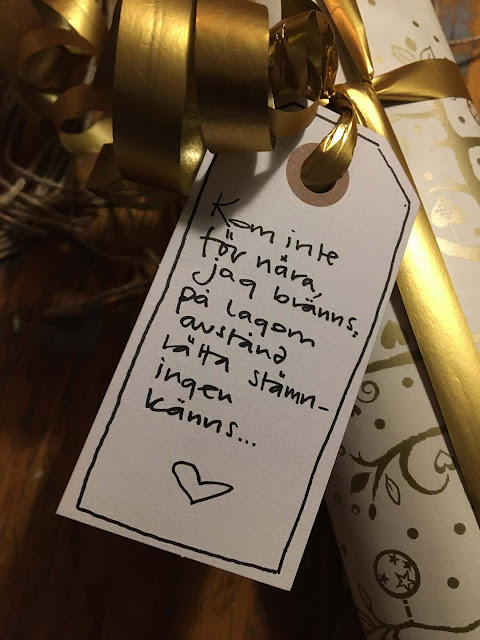 Kom inte
för nära,
jag bränns,
på lagom
avstånd
rätta stämn-
ingen
känns...